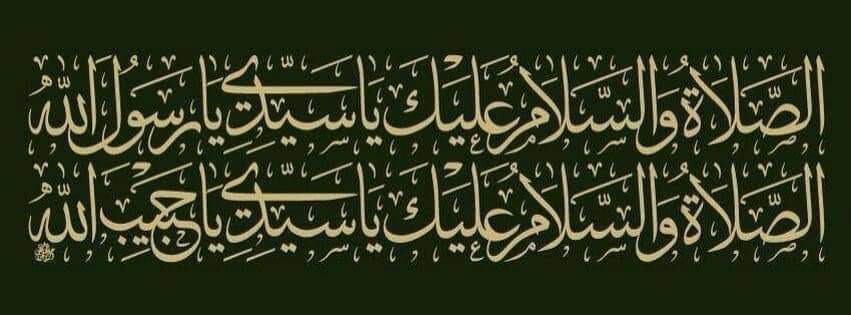 الصَّلَاةُ وَالسَّلَامُ عَلَيْكَ يَا سَيِّدِي يَا رَسُولَ اللهِ
الصَّلَاةُ وَالسَّلَامُ عَلَيْكَ يَا سَيِّدِي يَا حَبِيبَ اللهِ